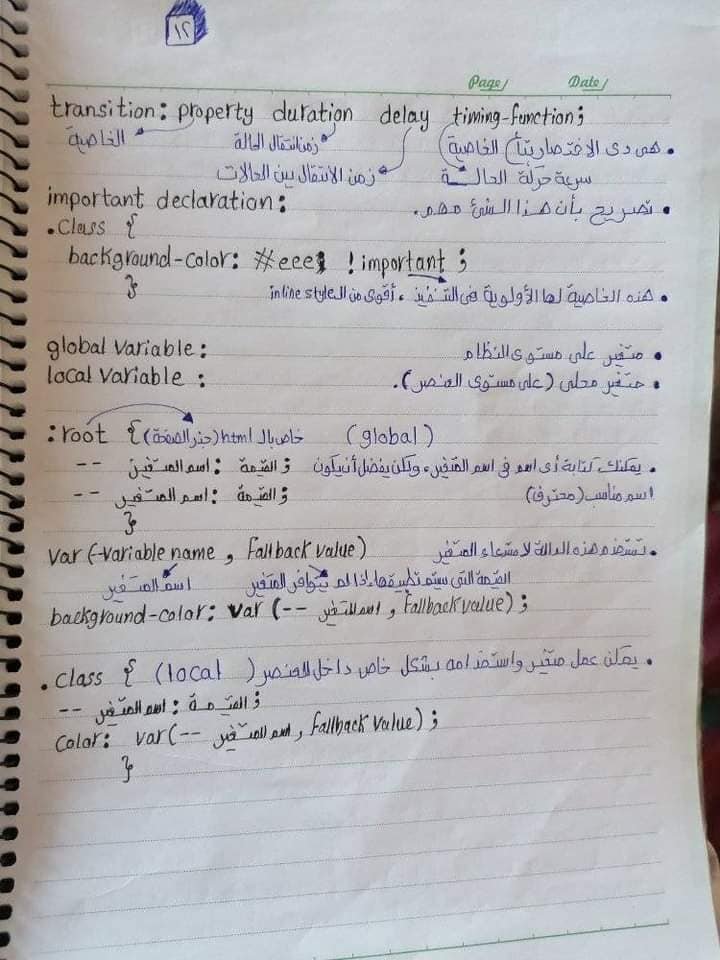 ١٢
Page/ Date/
transition: property duration delay timing-function;
• هى دى الاختصار بتاع الخاصية زمن انتقال الحالة الخاصية
سرعة حركة الحالة زمن الانتقال بين الحالات
important declaration:
• تصريح بأن هذا الشئ مهم.
.Class {
background-color: #eee; !important ;
} • هذه الخاصية لها الأولوية فى التنفيذ، أقوى من الـ inline style
global variable: • متغير على مستوى النظام
local variable : • متغير محلى (على مستوى العنصر).
:root { خاص بالـ html (جذر الصفحة) (global)
-- اسم المتغير: القيمة ; • يمكنك كتابة أى اسم فى اسم المتغير، ولكن يفضل أن يكون
-- اسم المتغير: القيمة ; اسم مناسب (محترف)
}
var (-variable name , Fallback value) • تستخدم هذه الدالة لاستدعاء المتغير
اسم المتغير القيمة التى سيتم تطبيقها إذا لم يتوافر المتغير
background-color: var (-- اسم المتغير , Fallback value) ;
.class { (local) • يمكن عمل متغير واستخدامه بشكل خاص داخل العنصر
-- اسم المتغير: القيمة ;
Color: var (-- اسم المتغير , Fallback value) ;
}